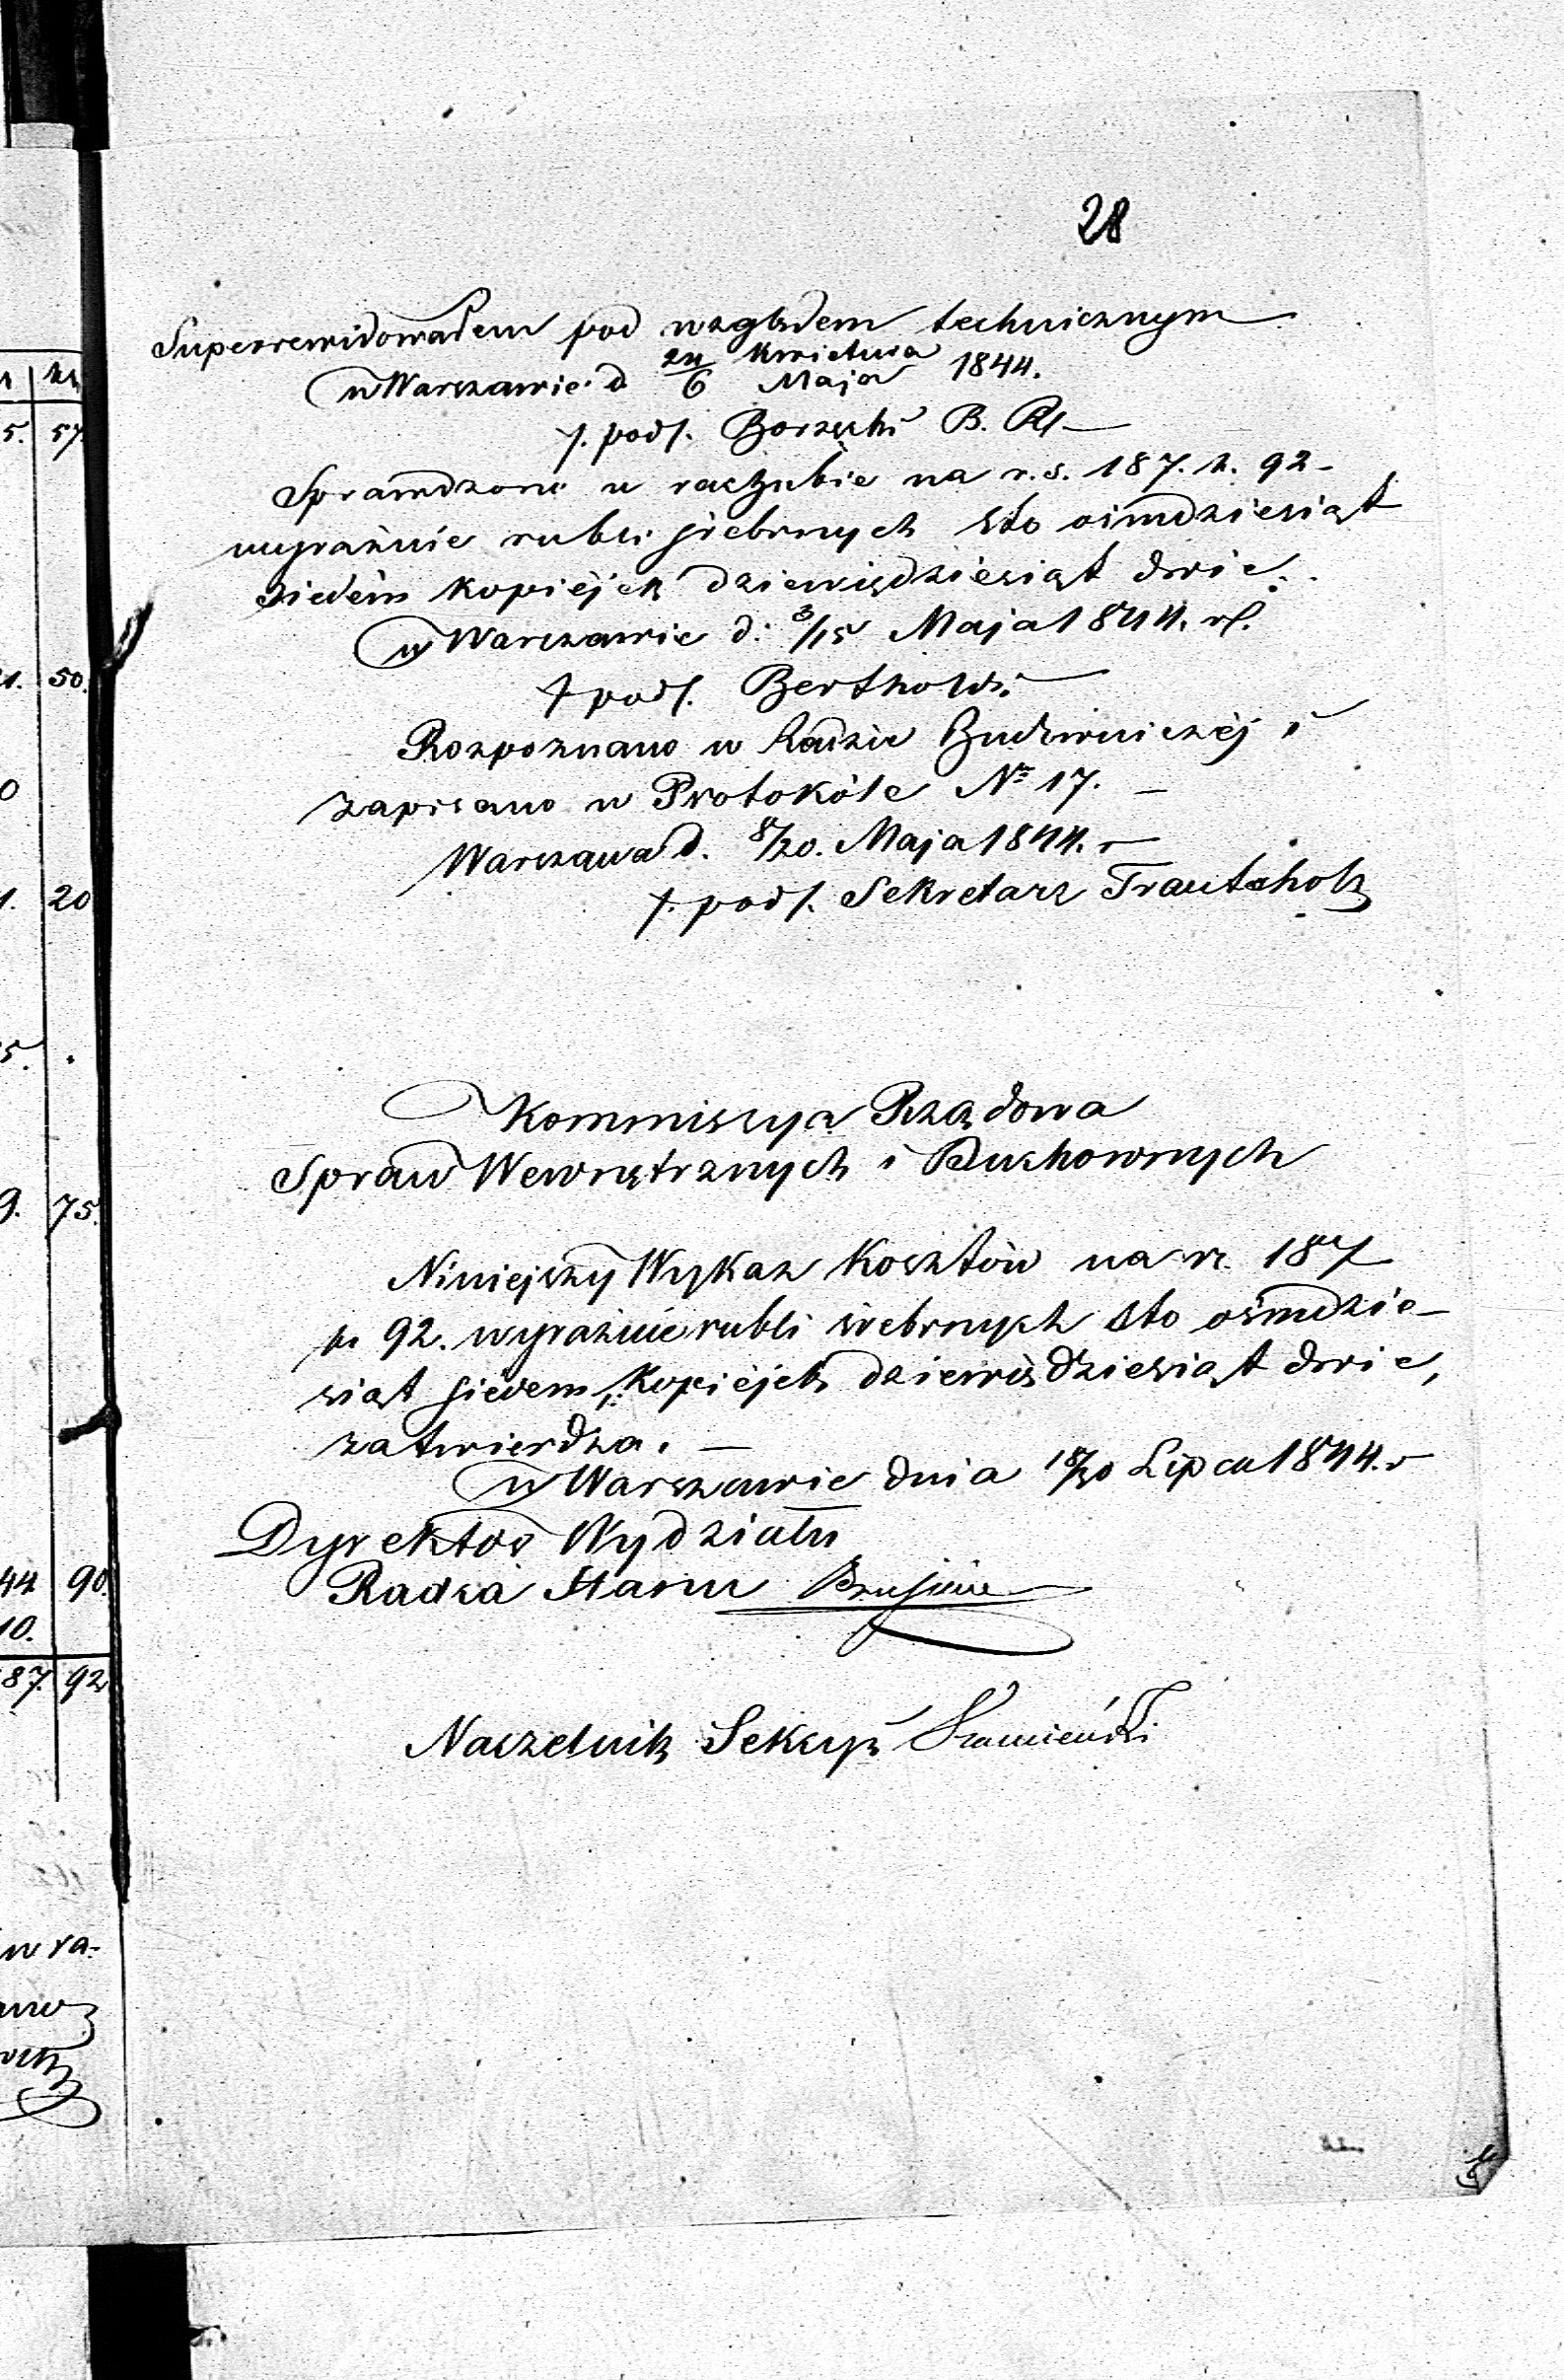 28
Superrewidowałem pod względem technicznym
w Warszawie d 24/6 Kwietnia/Maja 1844.
/. podp. Borzęcki B. R.
Sprawdzono w rachubie na r.s. 187. k. 92 -
wyraźnie rubli srebrnych sto ośmdziesiąt
siedém kopiéjek dziewięćdziesiąt dwie.
w Warszawie d: 3/15 Maja 1844. r.
/. podp. Bertholdi
Rozpoznano w Radzie Budowniczéj i
zapisano w Protokóle № 17. -
Warszawa d. 8/20. Maja 1844. r
/. podp. Sekretarz Trautsholz
Kommissya Rządowa
Spraw Wewnętrznych i Duchownych
Niniejszy Wykaz Kosztów na r. 187
k 92. wyraźnie rubli srebrnych sto ośmdzie-
siąt siedem, Kopiéjek dziewięćdziesiąt dwie,
zatwierdza. -
w Warszawie dnia 18/30 Lipca 1844. r
Dyrektor Wydziału
Radca Stanu
Naczelnik Sekcyi
5. 57
1. 50.
0
1. 20
5. .
9. 75.
44 90.
10.
87. 92
w ra-